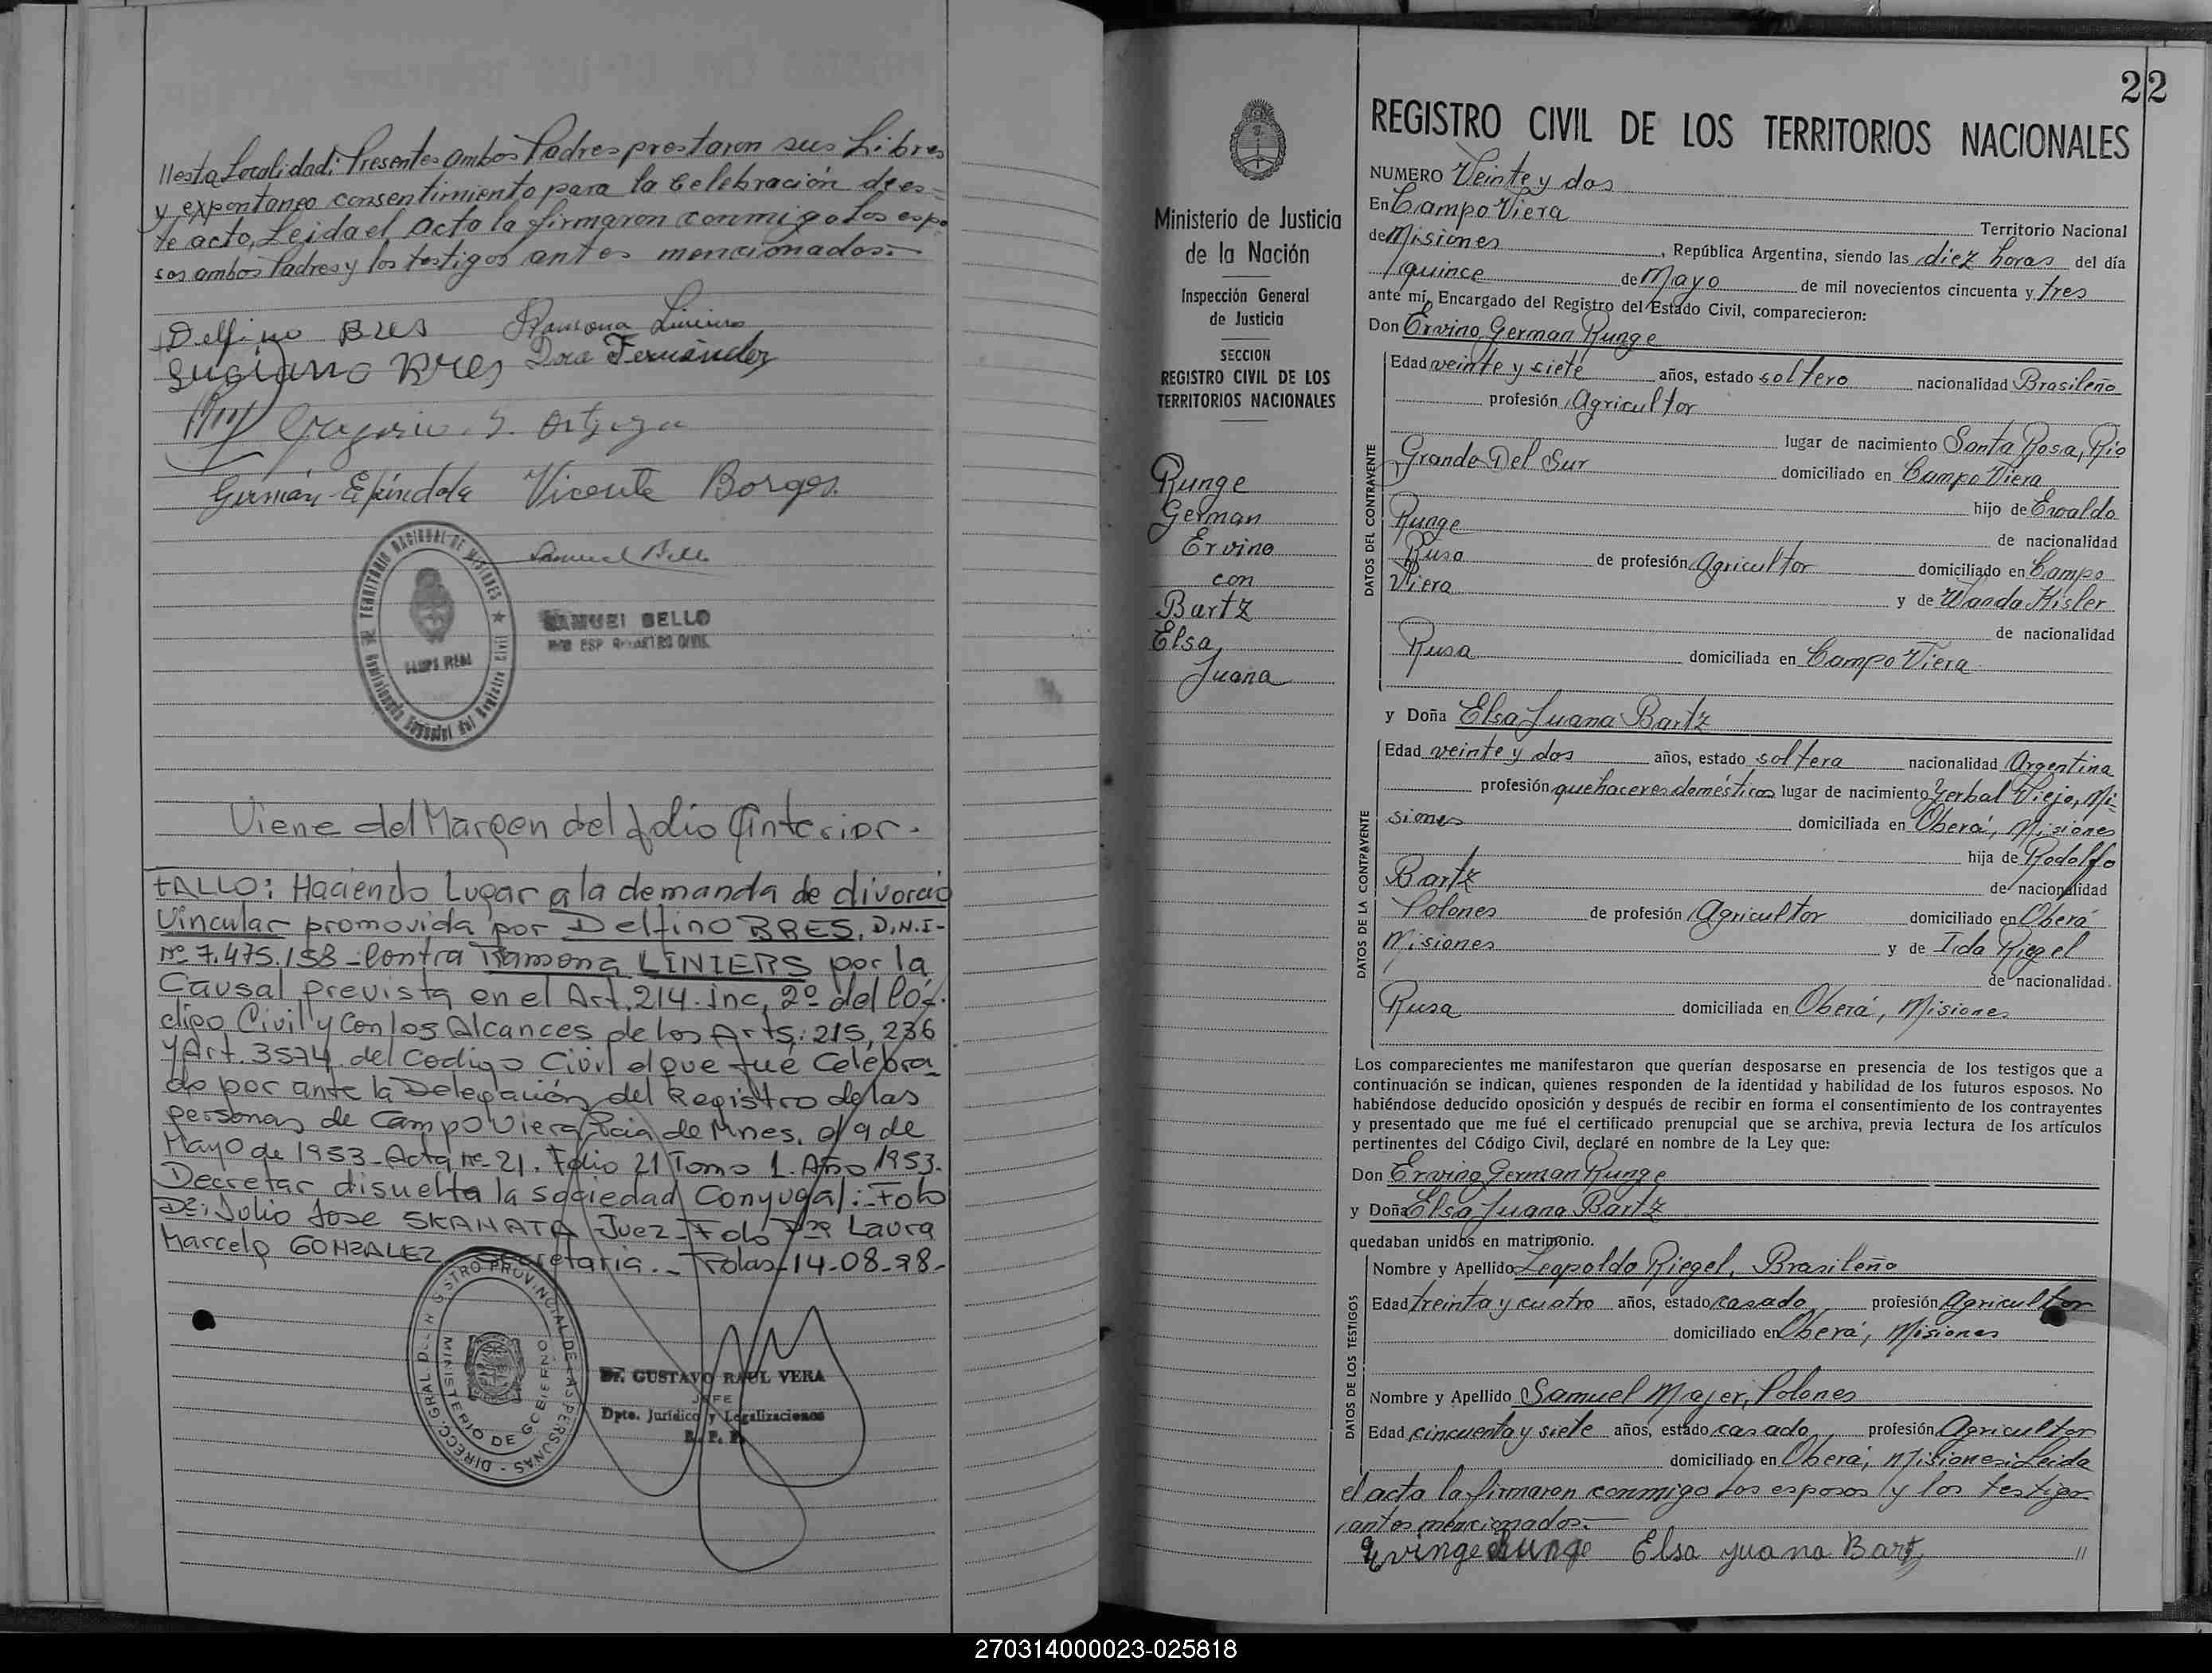 //esta Localidad: Presentes ambos Padres prestaron sus Libres
y expontaneo consentimiento para la Celebración de es-
te acto, Leida el acto la firmaron conmigo Los espo-
sos ambos Padres y los testigos antes mencionados.-
Delfino Bres Ramona Liniers
Luciano Bres Dora Fernández
Gregorio S. Ortega
Germán Espíndola Vicente Borges.
Samuel Bello
TERRITORIO NACIONAL DE MISIONES
SAMUEL BELLO
ESP REGISTRO CIVIL
Viene del Margen del folio Anterior.
FALLO: Haciendo Lugar a la demanda de divorcio
Vincular promovida por Delfino BRES, D.N.I-
Nº 7.475.158 - Contra Ramona LINIERS por la
Causal prevista en el Art. 214. inc, 2º del Có-
digo Civil y con los Alcances de los Arts: 215, 236
y Art. 3574 del Codigo Civil el que fué Celebra-
do por ante la Delegación del Registro de las
personas de Campo Viera Pcia de Mnes, el 9 de
Mayo de 1953 - Acta Nº - 21. Folio 21 Tomo 1. Año 1953.
Decretar disuelta la sociedad Conyugal:- Fdo
DR: Julio Jose SKANATA Juez - Fdo Dra Laura
Marcela GONZALEZ Secretaria.- 14-08-98-
DIRECC. GRAL. DEL REGISTRO PROVINCIAL DE LAS PERSONAS
MINISTERIO DE GOBIERNO
Dr. GUSTAVO RAUL VERA
JEFE
Dpto. Jurídico y Legalizaciones
R. P. P.
22
Ministerio de Justicia
de la Nación
Inspección General
de Justicia
SECCION
REGISTRO CIVIL DE LOS
TERRITORIOS NACIONALES
Runge
German
Ervino
con
Bartz
Elsa
Juana
REGISTRO CIVIL DE LOS TERRITORIOS NACIONALES
NUMERO Veinte y dos
En Campo Viera Territorio Nacional
de Misiones, República Argentina, siendo las diez horas del día
quince de Mayo de mil novecientos cincuenta y tres
ante mí, Encargado del Registro del Estado Civil, comparecieron:
Don Ervino German Runge
DATOS DEL CONTRAYENTE
Edad veinte y siete años, estado soltero nacionalidad Brasileño
profesión Agricultor
lugar de nacimiento Santa Rosa, Rio
Grande Del Sur domiciliado en Campo Viera
hijo de Ewaldo
Runge de nacionalidad
Ruso de profesión Agricultor domiciliado en Campo
Viera y de Wanda Kisler
de nacionalidad
Rusa domiciliada en Campo Viera
y Doña Elsa Juana Bartz
DATOS DE LA CONTRAYENTE
Edad veinte y dos años, estado soltera nacionalidad Argentina
profesión quehaceres domésticos lugar de nacimiento Yerbal Viejo, Mi-
siones domiciliada en Oberá, Misiones
hija de Rodolfo
Bartz de nacionalidad
Polones de profesión Agricultor domiciliado en Oberá
Misiones y de Ida Riegel
de nacionalidad
Rusa domiciliada en Oberá, Misiones
Los comparecientes me manifestaron que querían desposarse en presencia de los testigos que a
continuación se indican, quienes responden de la identidad y habilidad de los futuros esposos. No
habiéndose deducido oposición y después de recibir en forma el consentimiento de los contrayentes
y presentado que me fué el certificado prenupcial que se archiva, previa lectura de los artículos
pertinentes del Código Civil, declaré en nombre de la Ley que:
Don Ervino German Runge
y Doña Elsa Juana Bartz
quedaban unidos en matrimonio.
DATOS DE LOS TESTIGOS
Nombre y Apellido Leopoldo Riegel, Brasileño
Edad treinta y cuatro años, estado casado profesión Agricultor
domiciliado en Oberá, Misiones
Nombre y Apellido Samuel Majer, Polones
Edad cincuenta y siete años, estado casado profesión Agricultor
domiciliado en Oberá, Misiones: Leida
el acto la firmaron conmigo Los esposos y los testigos
antes mencionados.-
Elsa Juana Bartz //
270314000023-025818